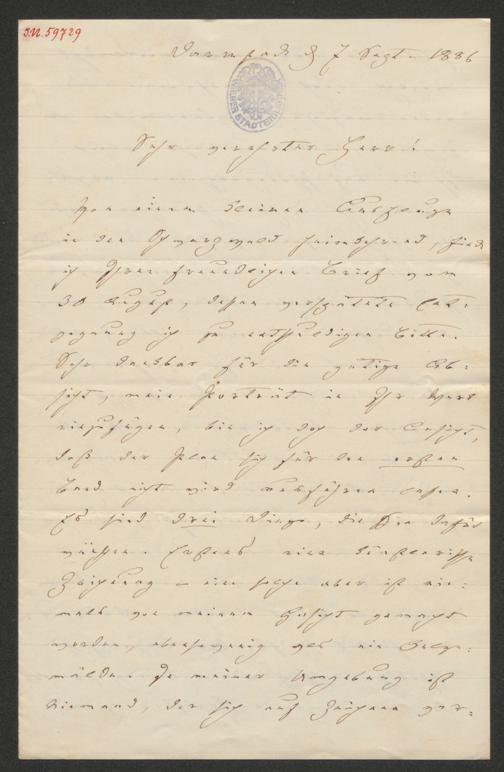 J.N. 59729
Darmstadt d 7 Sept. 1886
Sehr verehrter Herr!
Von einem kleinen Ausfluge
in den Schwarzwald heimkehrend, finde
ich Ihren freundlichen Brief vom
30 August, dessen verspätete Ent-
gegnung ich zu entschuldigen bitte.
Sehr dankbar für die gütige Ab-
sicht, mein Porträt in Ihr Werk
einzufügen, bin ich doch der Ansicht,
daß der Plan sich für den ersten
Band nicht wird ausführen lassen.
Es sind drei Dinge, die Ihn dafür
Erstens eine künstlerische
Zeichnung – eine solche aber ist nie-
mals von meinem Gesicht gemacht
worden, ebensowenig als ein Oelge-
mälde. In meiner Umgebung ist
Niemand, der sich auf Zeichnen ver-